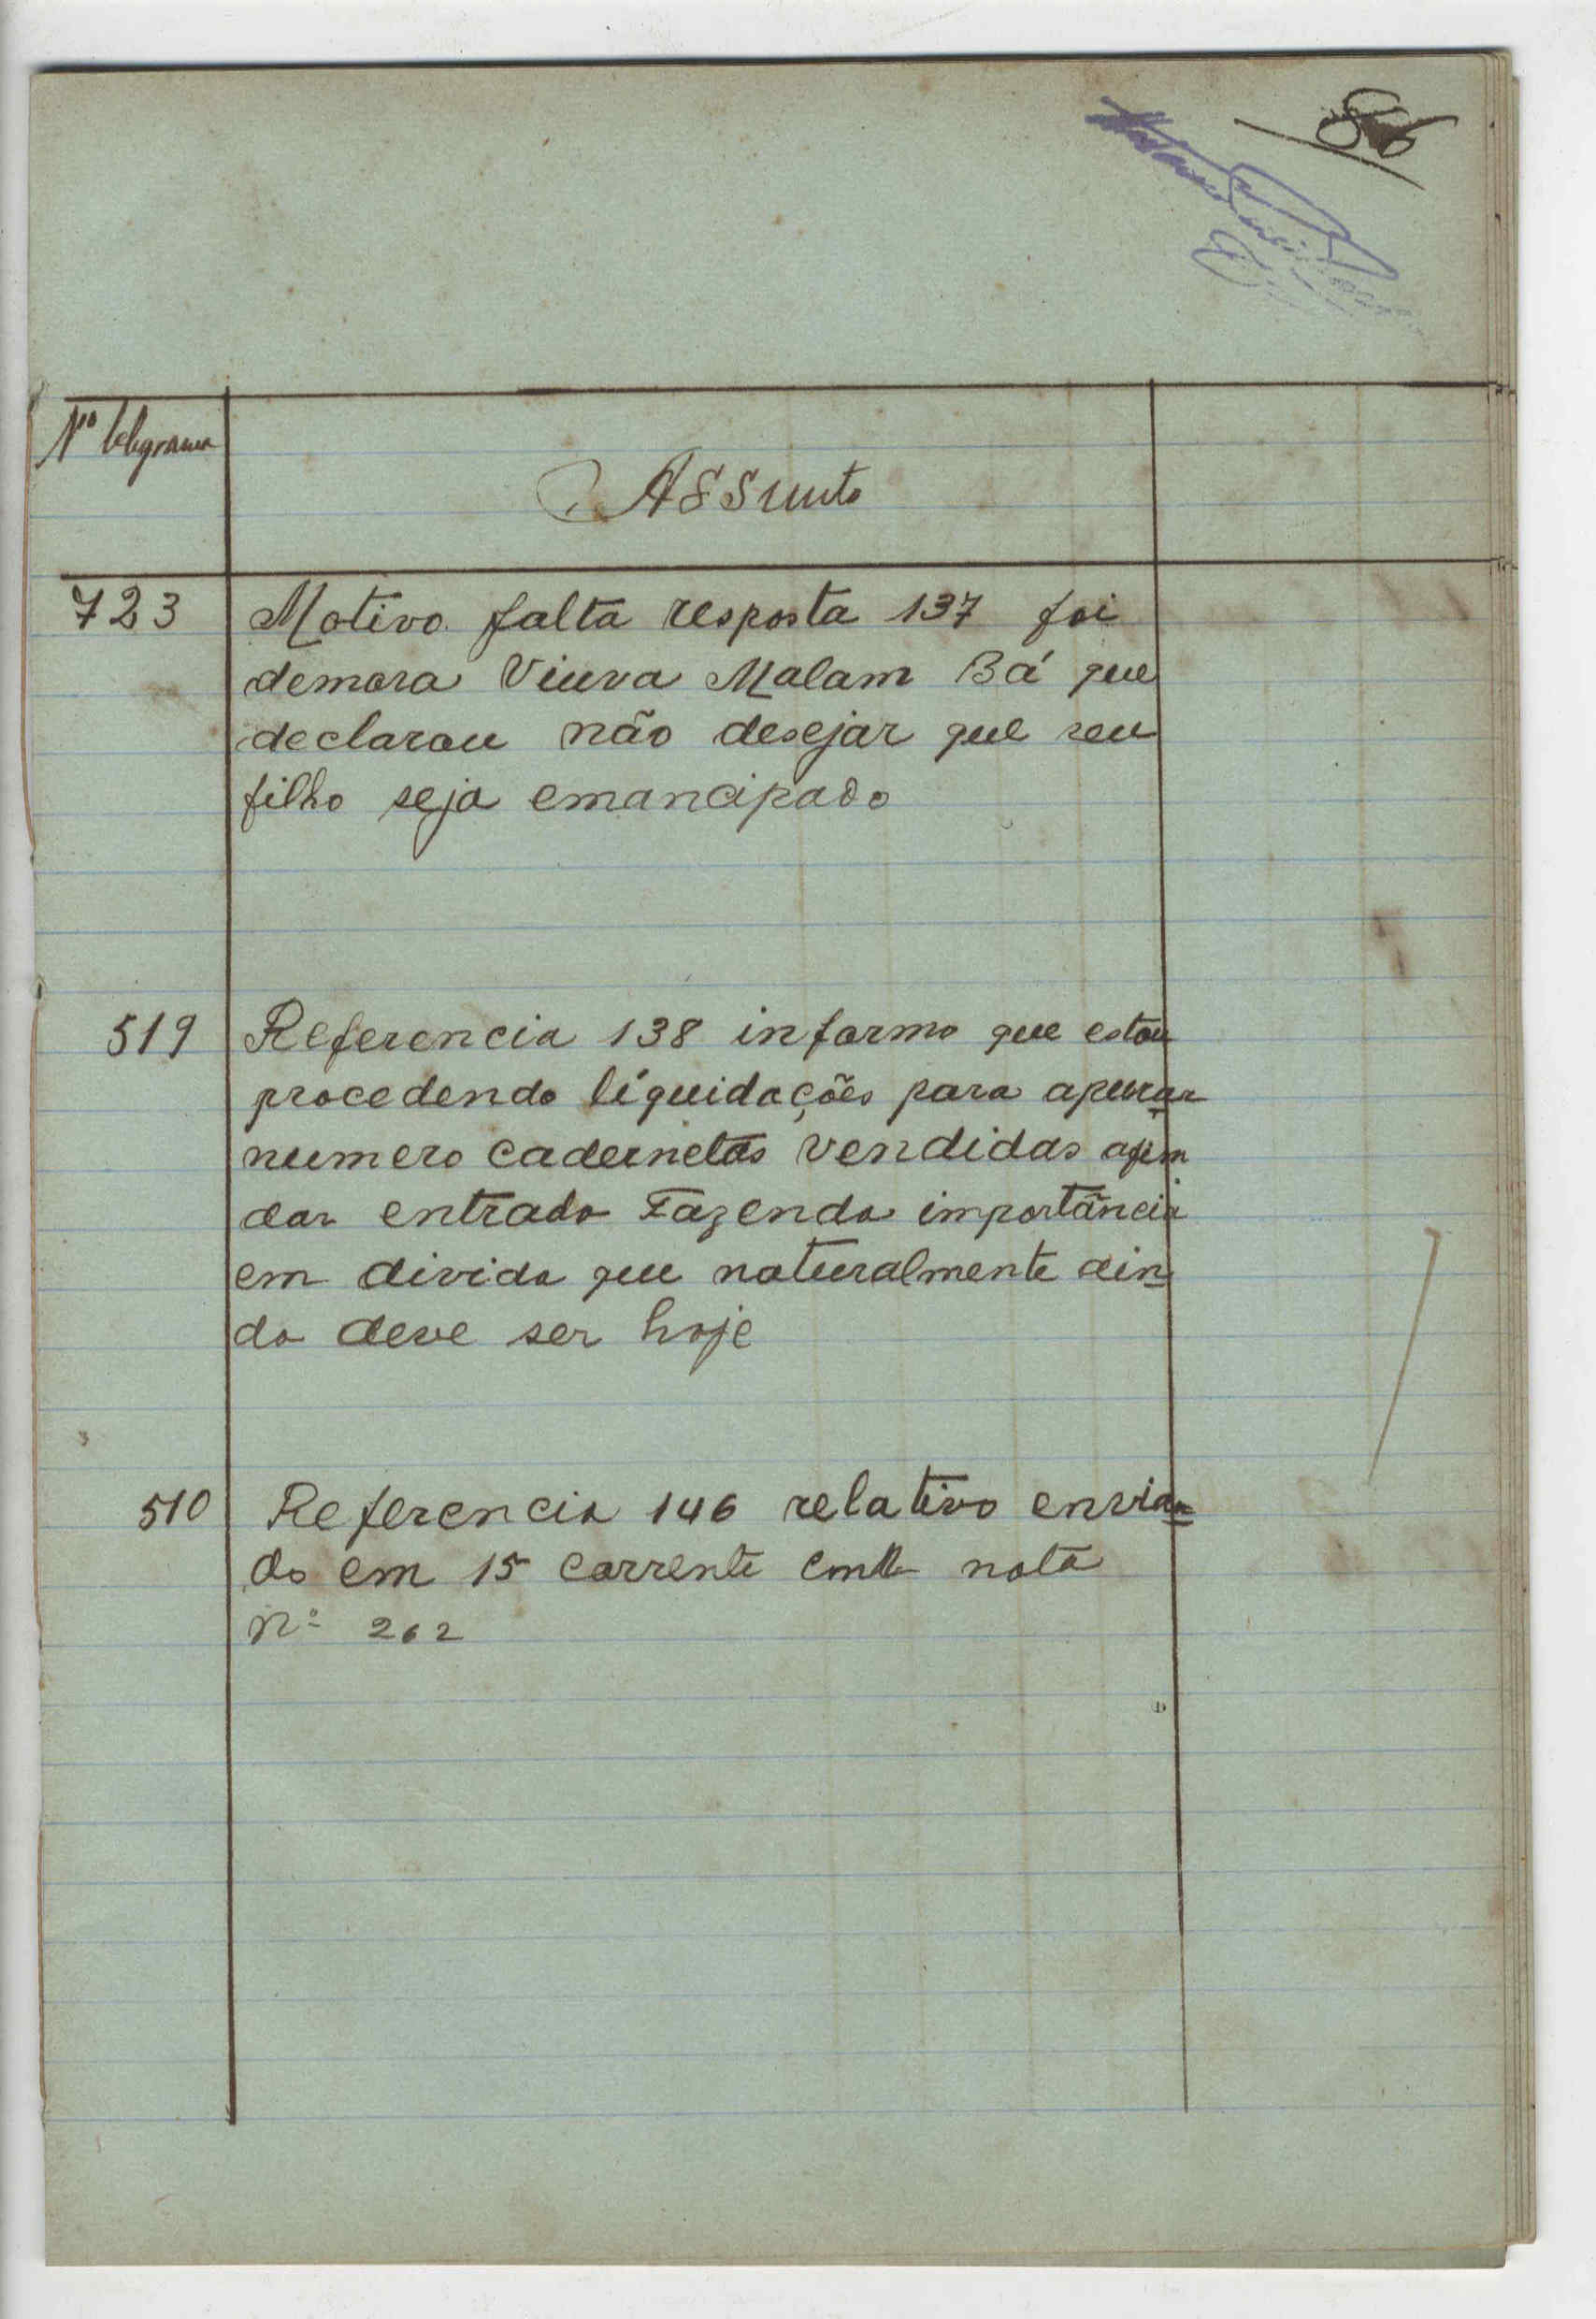 86
Nº telegrama
Assunto
723 Motivo falta resposta 137 foi
demora Viuva Malam Bá que
declarou não desejar que seu
filho seja emancipado
519 Referencia 138 informo que estou
procedendo líquidações para apurar
numero cadernetas vendidas afim
dar entrada Fazenda importância
em divida que naturalmente ain
da deve ser hoje
510 Referencia 146 relativo envia
do em 15 corrente nota
nº 262